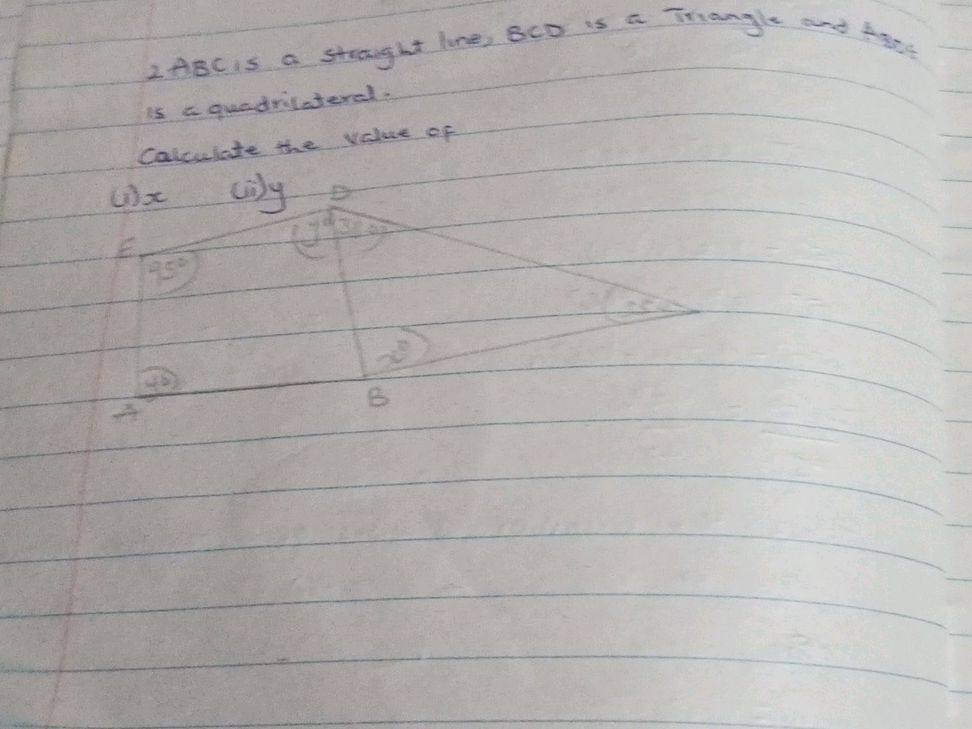 2 ABC is a straight line, BCD is a Triangle and
is a quadrilateral.
Calculate the value of
(i) x (ii) y
D
E
95°
y°
x°
A
B